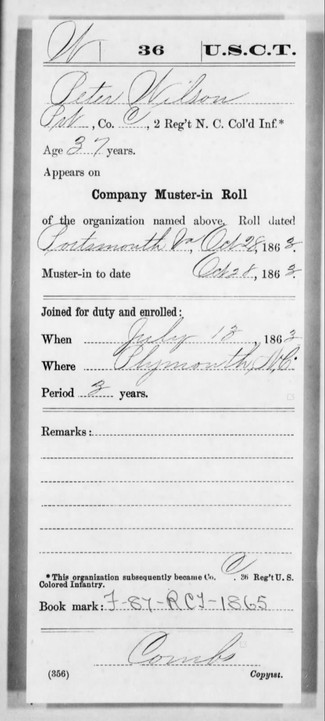 W 36 U.S.C.T.
Peter Wilson
Pvt, Co. C, 2 Reg't N. C. Col'd Inf.*
Age 37 years.
Appears on
Company Muster-in Roll
of the organization named above. Roll dated
Portsmouth Va, Oct 28, 1863.
Muster-in to date Oct 28, 1863.
Joined for duty and enrolled:
When July 12, 1863
Where Plymouth, N.C.
Period 3 years.
Remarks:
*This organization subsequently became Co. C, 36 Reg't U. S.
Colored Infantry.
Book mark: F-87-RCT-1865
Combs
(356) Copyist.